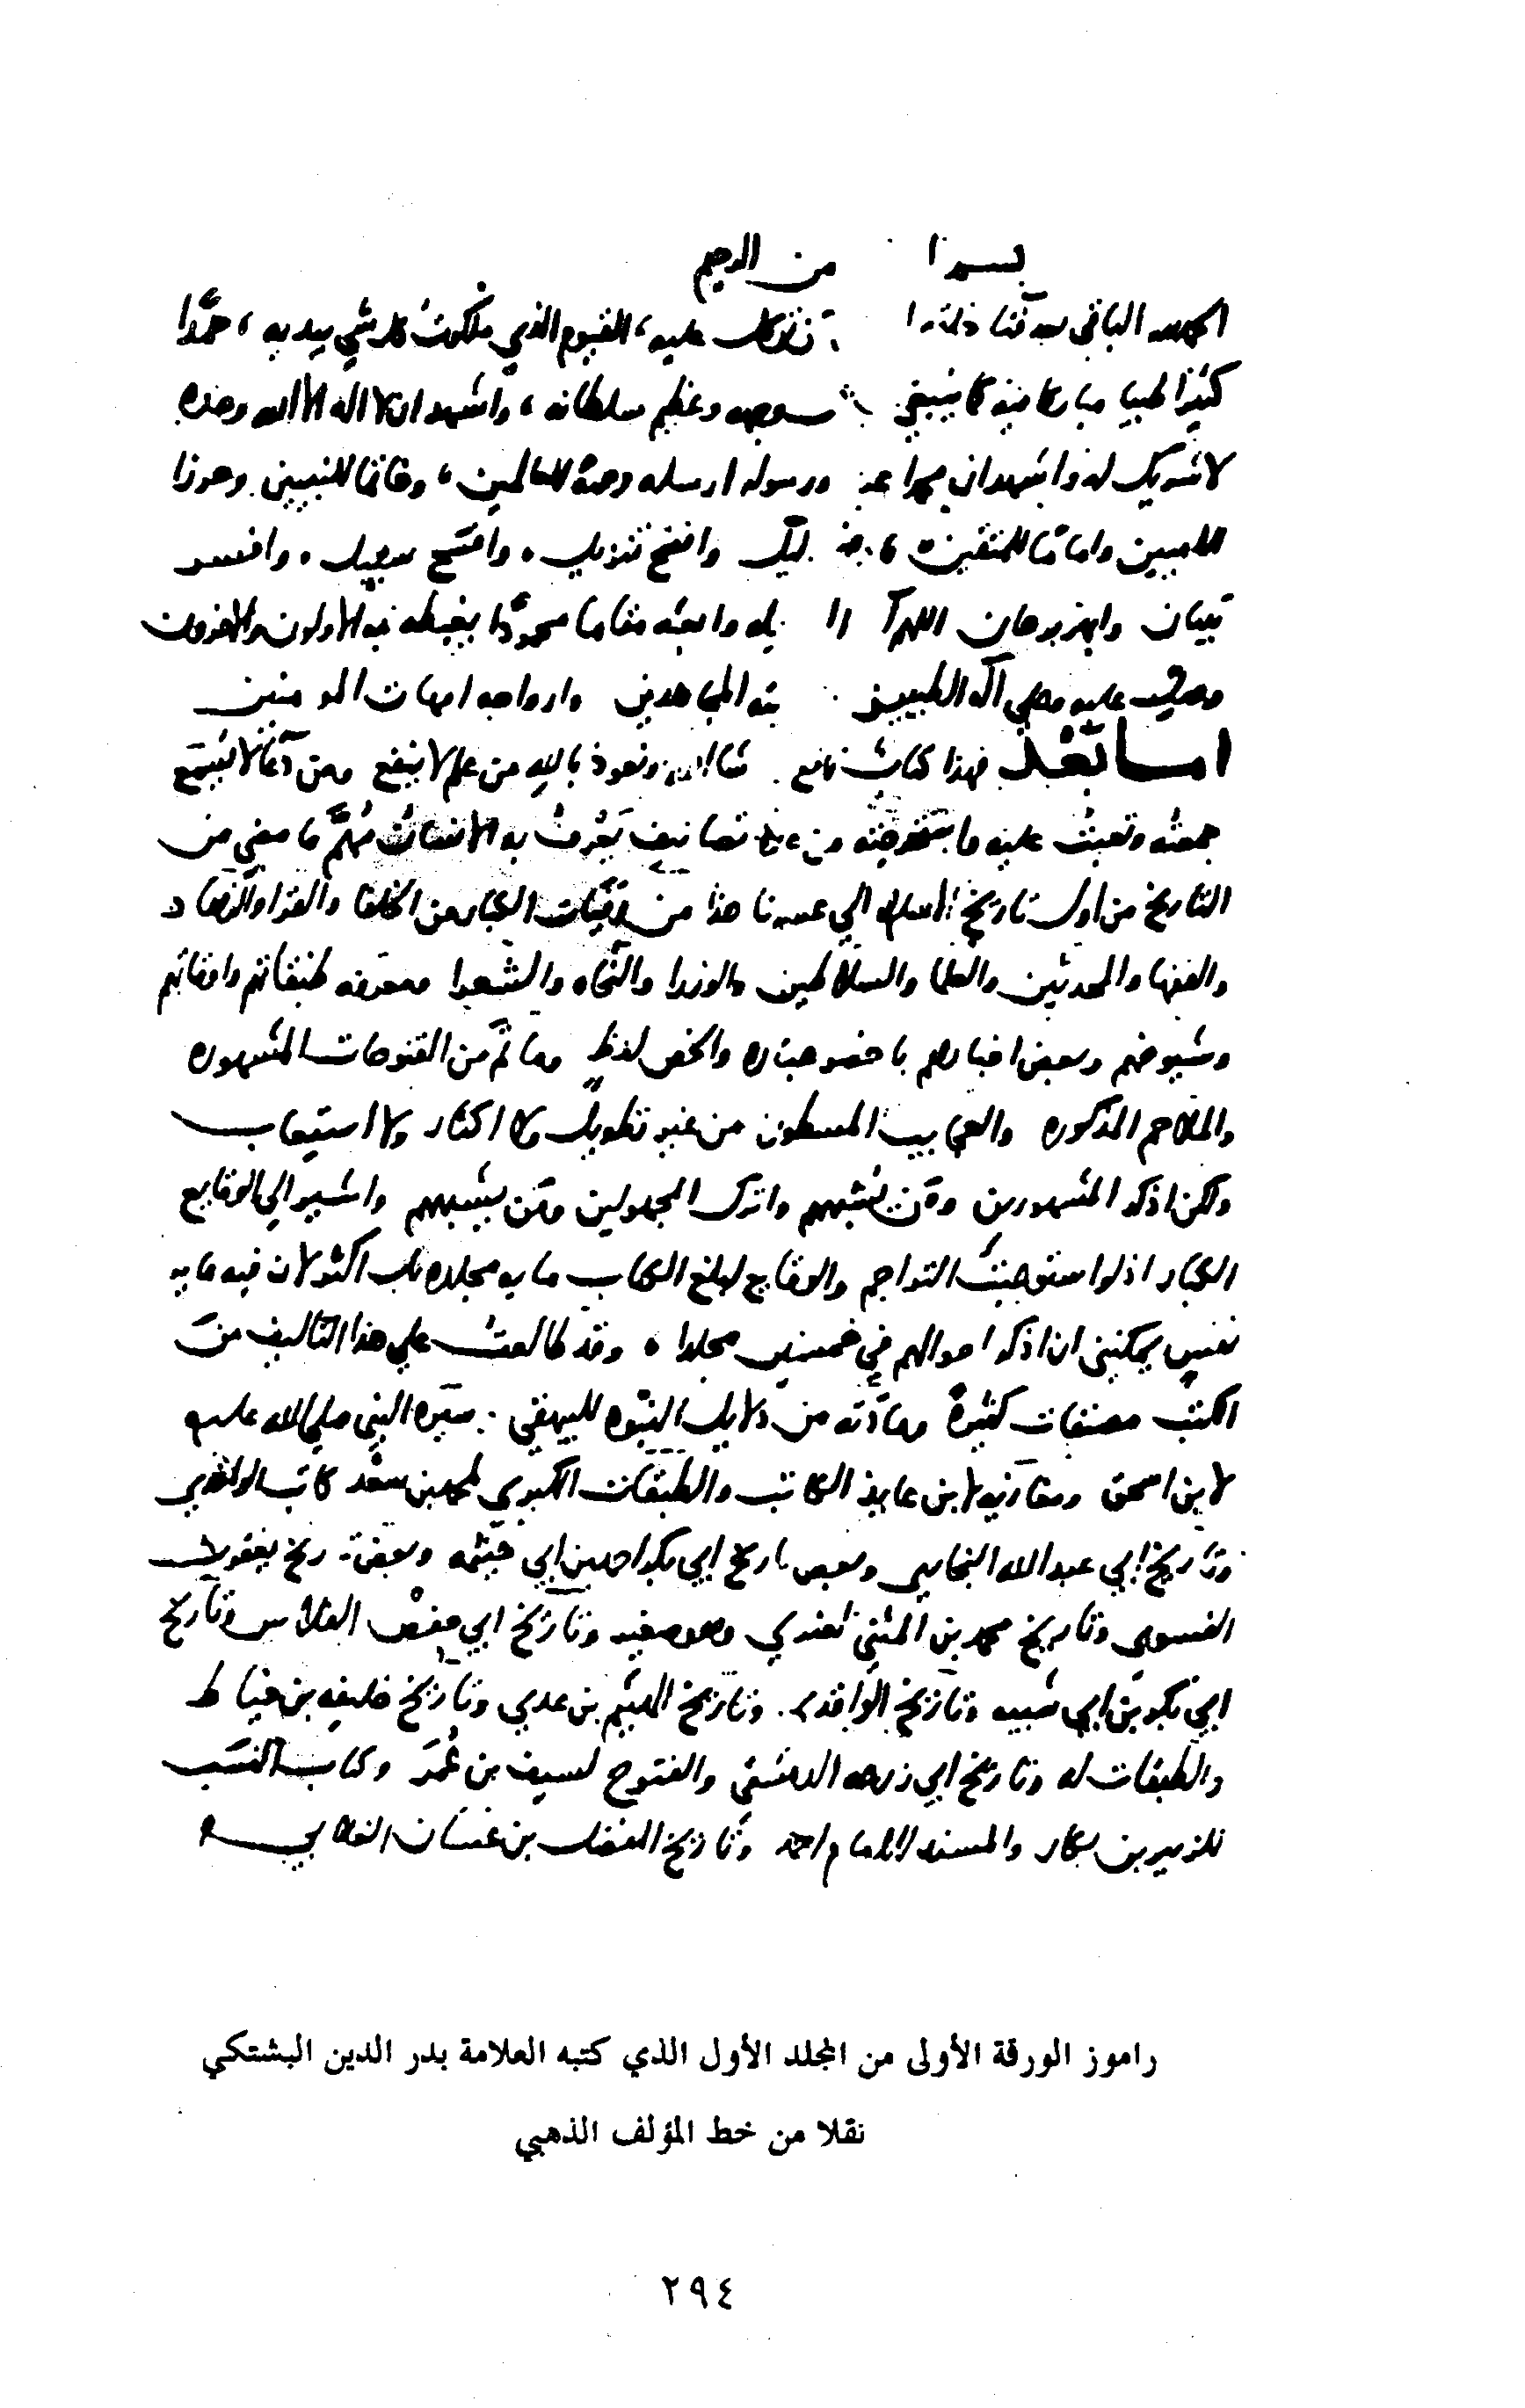 بسم ا من الرحيم
الحمد لله الباقي بعد فنا خلقه ا نتوكل عليه، القيوم الذي ملكوت كل شي بيديه، حمدًا
كثيرا طيبا مباركا فيه كما ينبغي وجهه وعظيم سلطانه، واشهد ان لا اله الا الله وحده
لا شريك له واشهد ان محمدا عبد ورسوله ارسله رحمة للعالمين، وخاتما للنبيين وحرزا
للاميين واماما للمتقين ليل وافصح تنزيل، وافسح سبيل، وافسر
تبيان وابهر برهان اللهم ا يله وابعثه مقاما محمودًا يغبطه فيه الاولون والاخرون
وصلى عليه وعلى آله الطيبين بته المجاهدين وازواجه امهات المومنين
اما بعد فهذا كتاب نافع شا الله ونعوذ بالله من علم لا ينفع ومن دعا لا يسمع
جمعته وتعبت عليه واستخرجته من عدة تصانيف يعرف به الانسان مهم ما مضى من
التاريخ من اول تاريخ الاسلام الى عصرنا هذا من وفيات الكبار من الخلفا والقرا والزهاد
والفقها والمحدثين والعلما والسلاطين والوزرا والنحاه والشعرا ومعرفه طبقاتهم واوقاتهم
وشيوخهم وبعض اخبارهم باخصر عباره والخص لفظ وما تم من الفتوحات المشهوره
والملاحم المذكوره والعجايب المسطوره من غير تطويل ولا اكثار ولا استيعاب
ولكن اذكر المشهورين ومن يشبههم واترك المجهولين ومن يشبههم واشير الى الوقايع
الكبار اذ لو استوعبت التراجم والوقايع لبلغ الكتاب مايه مجلده بل اكثر لان فيه مايه
نفس يمكنني ان اذكر احوالهم في خمسين مجلدا، وقد طالعت على هذا التاليف من
الكتب مصنفات كثيرة ومادته من دلايل النبوه للبيهقي وسيره النبي صلى الله عليه
لابن اسحق ومغازيه لابن عايذ الكاتب والطبقات الكبرى لمحمد بن سعد كاتب الواقدي
وتاريخ ابي عبد الله البخاري وبعض تاريخ ابي بكر احمد بن ابي خيثمه وبعض تاريخ يعقوب
الفسوي وتاريخ محمد بن المثنى العنزي وهو صغير وتاريخ ابي حفص الفلاس وتاريخ
ابي بكر بن ابي شيبه وتاريخ الواقدي وتاريخ الهيثم بن عدي وتاريخ خليفه بن خياط
والطبقات له وتاريخ ابي زرعه الدمشقي والفتوح لسيف بن عمر وكتاب النسب
للزبير بن بكار والمسند للامام احمد وتاريخ المفضل بن غسان الغلابي
راموز الورقة الأولى من المجلد الأول الذي كتبه العلامة بدر الدين البشتكي
نقلا من خط المؤلف الذهبي
٢٩٤